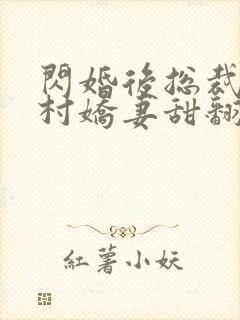 閃婚後總裁
村嬌妻甜翻
紅薯小妖